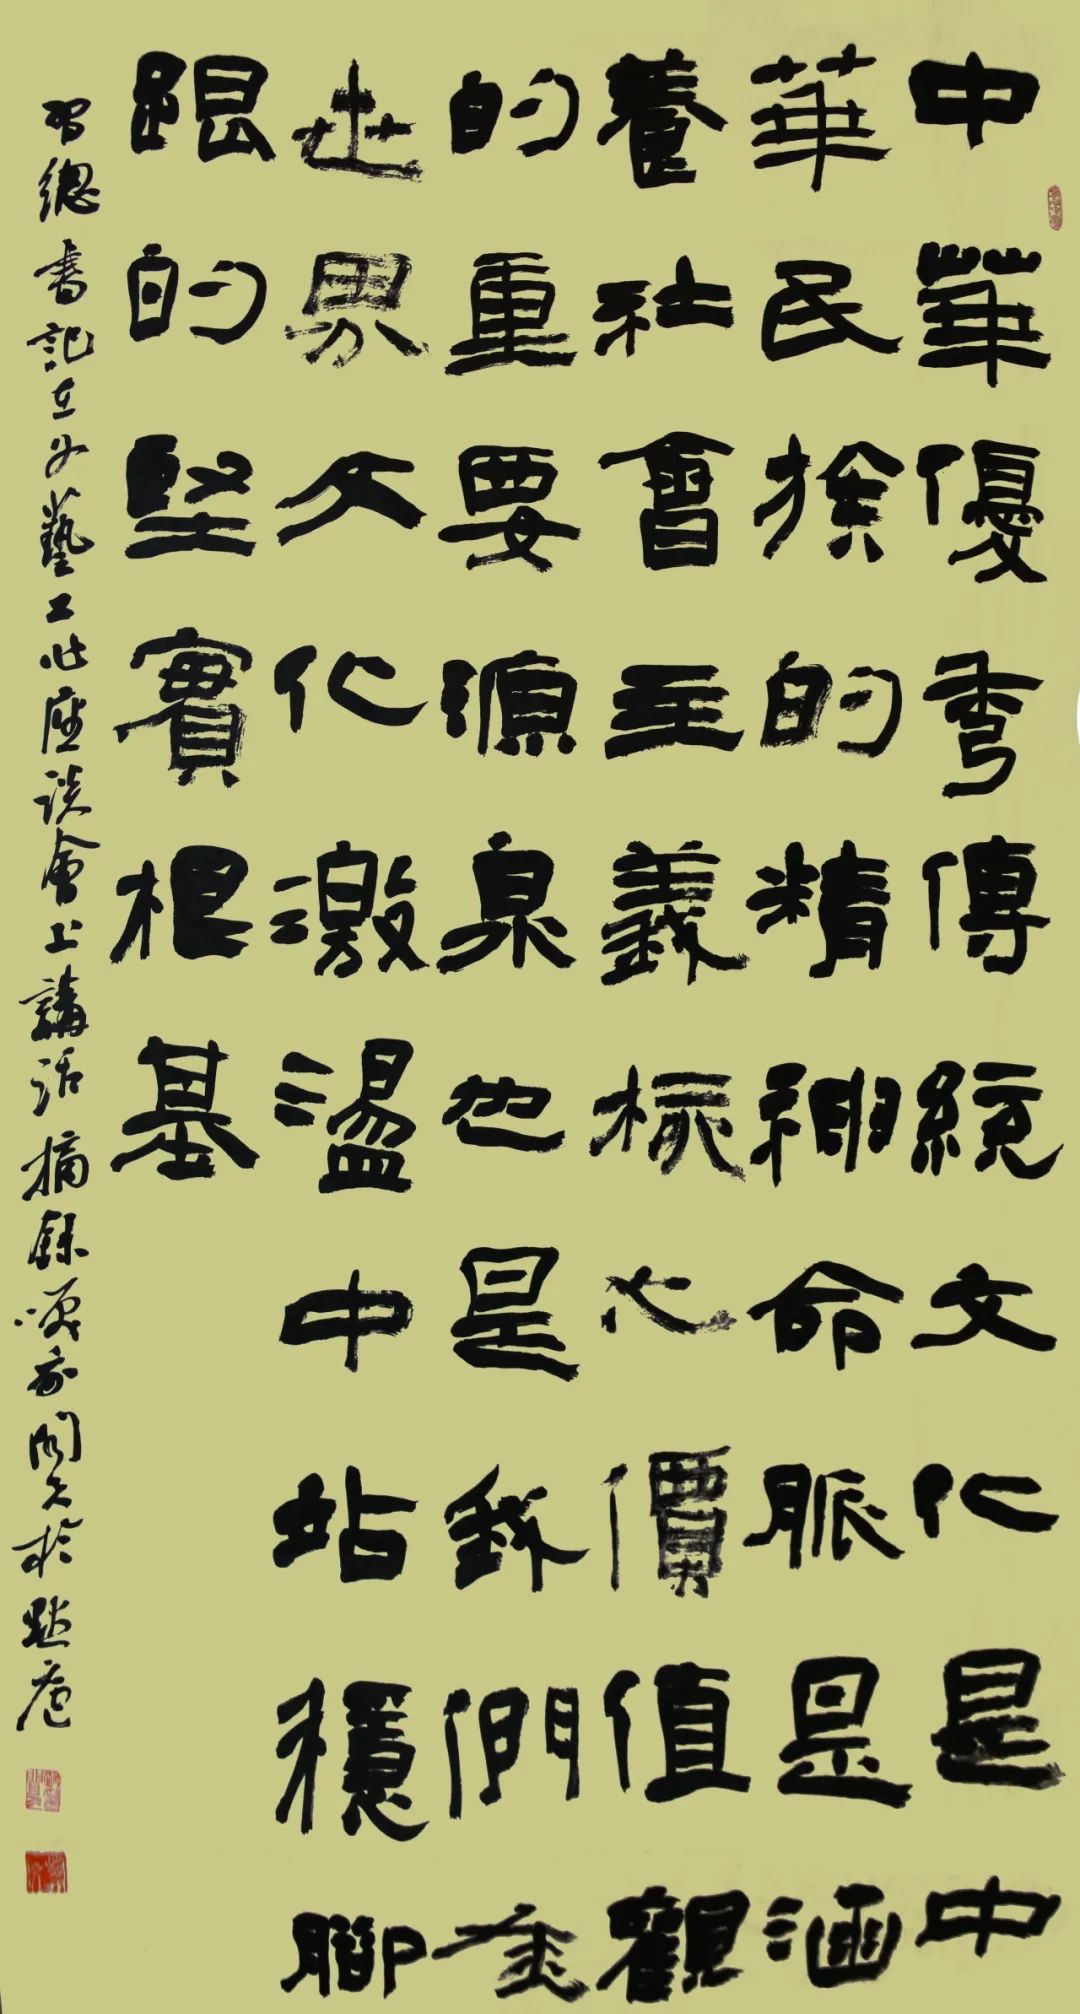 中華優秀傳統文化是中
華民族的精神命脈是涵
養社會主義核心價值觀
的重要源泉也是我們在
世界文化激盪中站穩腳
跟的堅實根基
習總書記在文藝工作座談會上講話摘錄 於